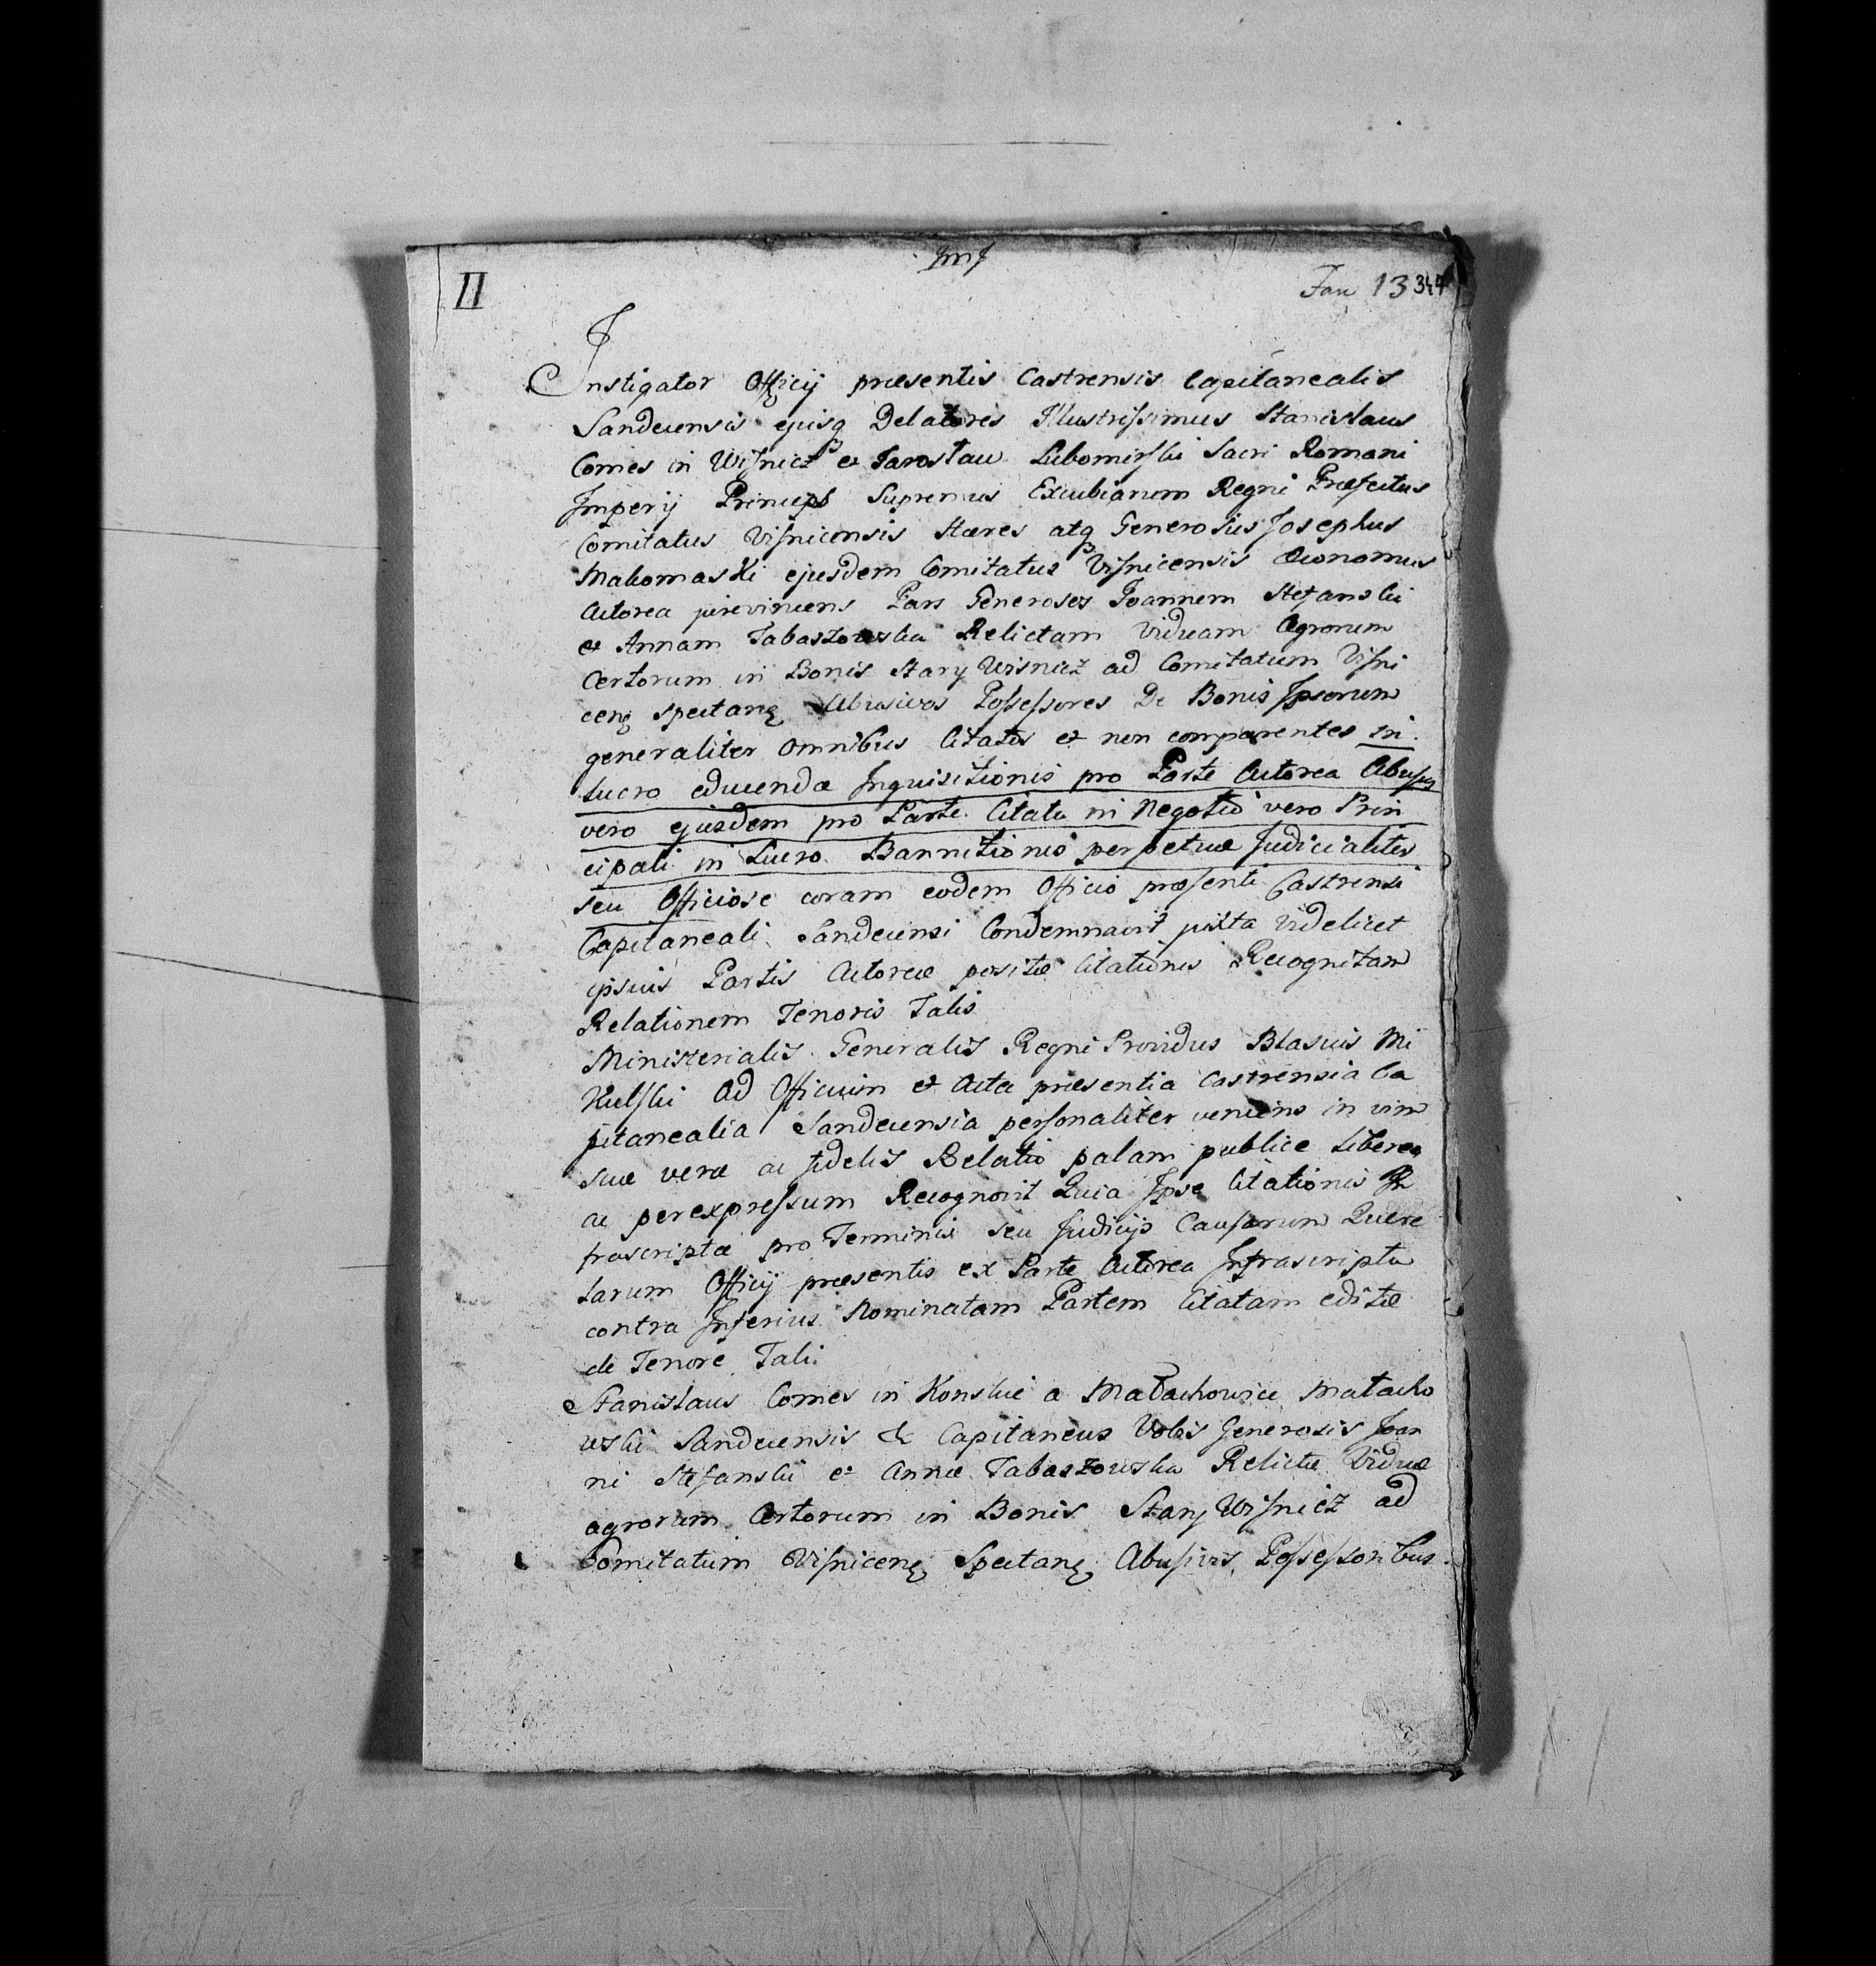 II
Fan 13 347
Instigator Officij præsentis Castrensis Capitanealis
Sandecensis ejusq Delatores Illustrissimus Stanislaus
Comes in Wisnicz et Jarosław Lubomirski Sacri Romani
Imperij Princeps Supremus Excubiarum Regni Præfectus
Comitatus Visnicensis Hæres atq Generosus Josephus
Makomaski ejusdem Comitatus Visnicensis Œconomus
Actorea perveniens Pars Generosos Joannem Stefanski
et Annam Tabaszowska Relictam Viduam Agrorum
Certorum in Bonis Stary Wisnicz ad Comitatum Visni
cenę spectanę Abusivos Possessores De Bonis Ipsorum
generaliter omnibus Citatos et non comparentes in
Lucro educendæ Inquisitionis pro Parte Actorea Abusus
vero ejusdem pro Parte Citata in Negotio vero Prin
cipali in Lucro Bannitionis perpetuæ Judicialiter
seu Officiose coram eodem Officio præsenti Castrensi
Capitaneali Sandecensi Condemnavit juxta videlicet
ipsius Partis Actoreæ positæ Citationis Recognitam
Relationem Tenoris Talis
Ministerialis Generalis Regni Providus Blasius Mi
Kulski ad Officium et Acta præsentia Castrensia Ca
pitanealia Sandecensia personaliter veniens in vim
suæ veræ ac fidelis Relatio palam publice libereq
ac per expressum Recognovit Quia Ipse Citationis In
frascriptæ pro Terminis seu Judicijs Causarum Quere
larum Officij præsentis ex Parte Actorea Infrascripta
contra Inferius Nominatam Partem Citatam editæ
de Tenore Tali
Stanislaus Comes in Konskie a Małachowice Małacho
wski Sandecensis & Capitaneus Vobis Generosis Joan
ni Stefanski et Annæ Tabaszowska Relictæ Viduæ
agrorum Certorum in Bonis Stary Wisnicz ad
Comitatum Visnicenę Spectanę Abusivis Possessoribus